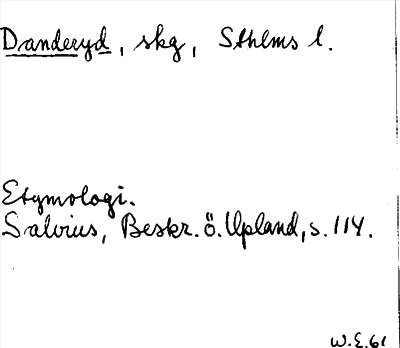 Danderyd, skg, Sthlms l.
Etymologi.
Salvius, Beskr. ö. Upland, s. 114.
W.E. 61